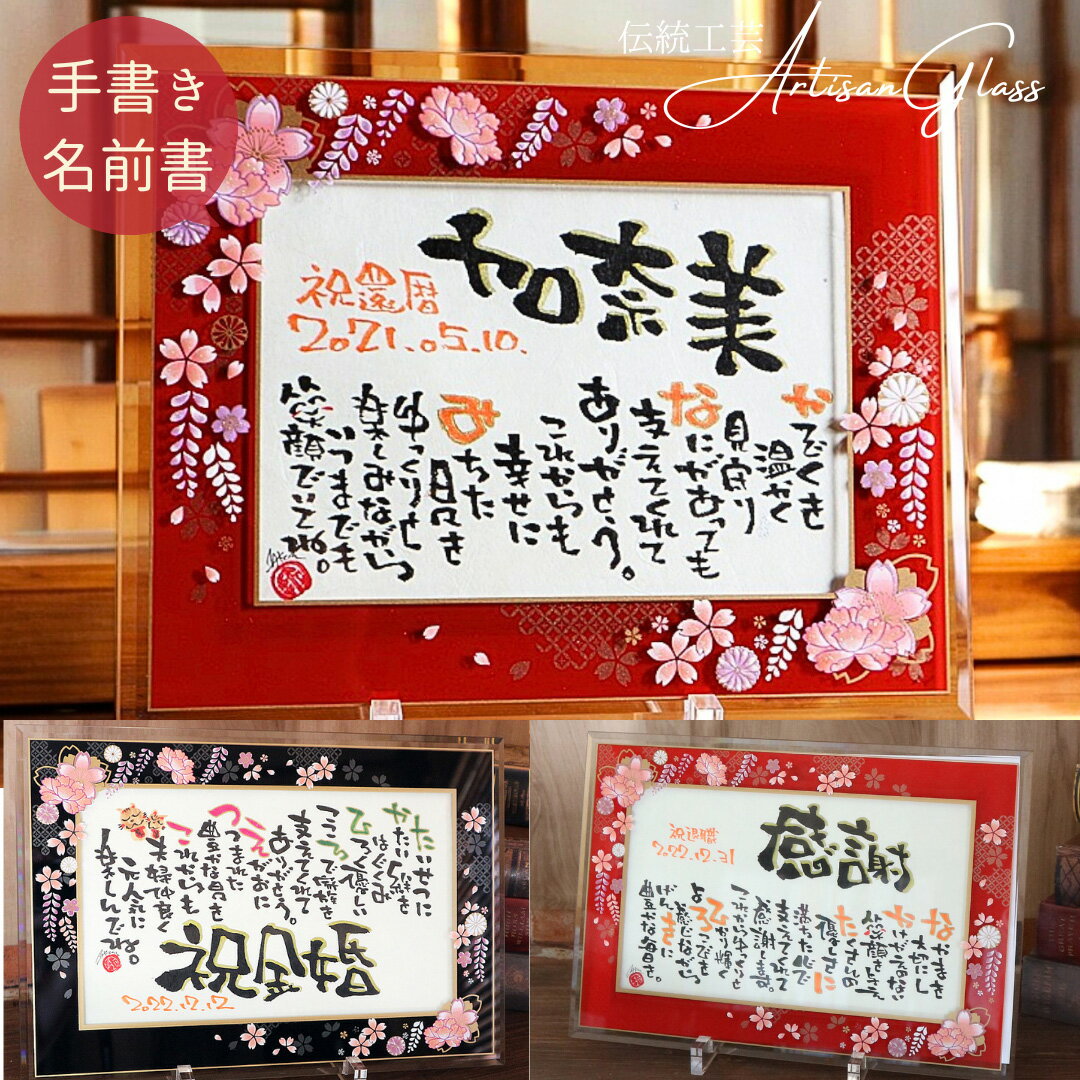 手書き
名前書
伝統工芸
Artisan Glass
加奈美
祝還暦
2021.05.10.
かぞくを
温かく
見守り
なにがあっても
支えてくれて
ありがとう。
これからも
幸せに
みちた
日々を
ゆっくりと
楽しみながら
いつまでも
笑顔でいてね。
たいせつに
かたい絆を
はぐくみ
ひろく優しい
こころで家族を
支えてくれて
ありがとう。
えがおに
つつまれた
豊かな日々を
これからも
夫婦仲良く
元気に
楽しんでね。
祝金婚
2022.12.12
感謝
祝退職
2022.12.31
なかまを
大切にし
かけがえのない
たくさんの
優しさに
満ちた心で
支えてくれて
感謝します。
これからゆっくりと
ひかり輝く
よろこびを
感じながら
げんきに
豊かな毎日を。